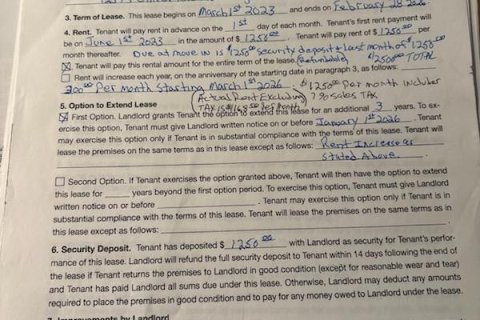 3. Term of Lease. This lease begins on March 1st 2023 and ends on February 28 2026
4. Rent. Tenant will pay rent in advance on the 1st day of each month. Tenant's first rent payment will
be on June 1st 2023 in the amount of $ 1250.00. Tenant will pay rent of $ 1250.00 per
month thereafter. Due at move in is $1250.00 security deposit & Last month of 1250.00
Tenant will pay this rental amount for the entire term of the lease. (Refundable) $2500.00 TOTAL
Rent will increase each year, on the anniversary of the starting date in paragraph 3, as follows:
200.00 Per Month Starting March 1st 2026. $1250.00 Per month Includes
(Actual Rent Excluding 7% Sales TAX
5. Option to Extend Lease TAX is per Month)
First Option. Landlord grants Tenant the option to extend this lease for an additional 3 years. To ex-
ercise this option, Tenant must give Landlord written notice on or before January 1st 2026. Tenant
may exercise this option only if Tenant is in substantial compliance with the terms of this lease. Tenant will
lease the premises on the same terms as in this lease except as follows: Rent Increase as
Stated Above.
Second Option. If Tenant exercises the option granted above, Tenant will then have the option to extend
this lease for years beyond the first option period. To exercise this option, Tenant must give Landlord
written notice on or before . Tenant may exercise this option only if Tenant is in
substantial compliance with the terms of this lease. Tenant will lease the premises on the same terms as in
this lease except as follows:
6. Security Deposit. Tenant has deposited $ 1250.00 with Landlord as security for Tenant's perfor-
mance of this lease. Landlord will refund the full security deposit to Tenant within 14 days following the end of
the lease if Tenant returns the premises to Landlord in good condition (except for reasonable wear and tear)
and Tenant has paid Landlord all sums due under this lease. Otherwise, Landlord may deduct any amounts
required to place the premises in good condition and to pay for any money owed to Landlord under the lease.
7. Improvements by Landlord